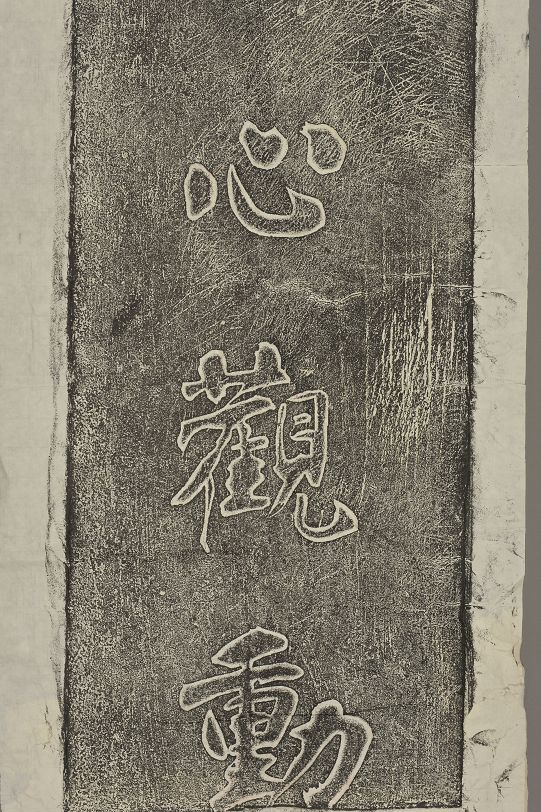 心觀動